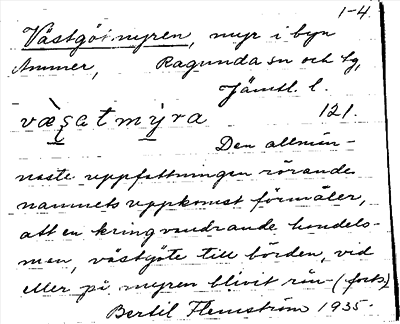 1-4.
Västgötmyren, myr i byn
Ammer, Ragunda sn och tg,
Jämtl. l.
væ̀ʂatmýra 121.
Den allmän-
naste uppfattningen rörande
namnets uppkomst förmäler,
att en kringvandrande handels-
men, västgöte till börden, vid
eller på myren blivit rån- (forts)
Bertil Flemström 1935.